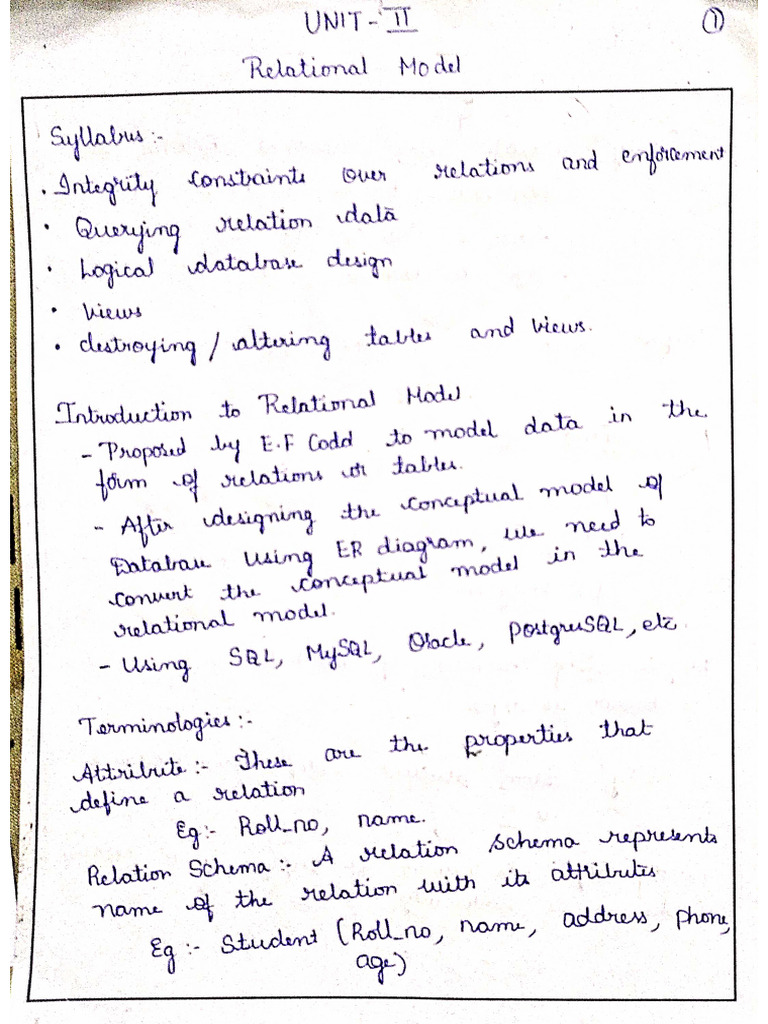 UNIT-II
①
Relational Model
Syllabus:-
• Integrity constraints over relations and enforcement
• Querying relation data
• Logical database design
• Views
• destroying / altering tables and views.
Introduction to Relational Model
- Proposed by E.F Codd to model data in the
form of relations or tables.
- After designing the conceptual model of
Database using ER diagram, we need to
convert the conceptual model in the
relational model.
- Using SQL, MySQL, Oracle, PostgreSQL, etc
Terminologies:-
Attribute:- These are the properties that
define a relation
Eg:- Roll_no, name.
Relation Schema:- A relation schema represents
name of the relation with its attributes
Eg:- Student (Roll_no, name, address, phone,
age)